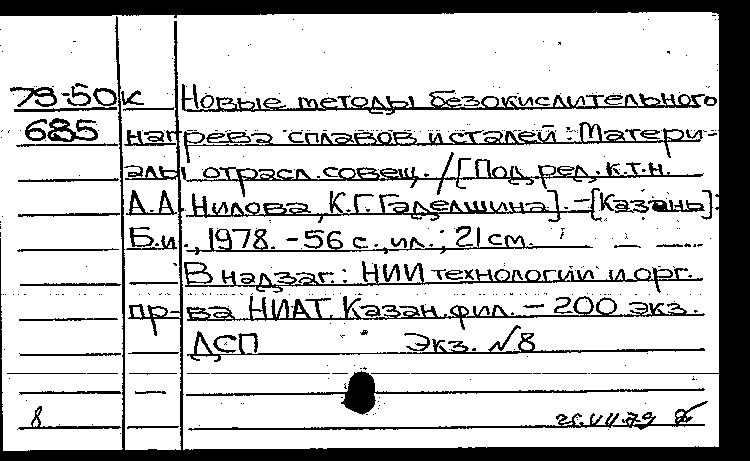 79-50к Новые методы безокислительного
685 нагрева сплавов и сталей: Матери-
алы отрасл. совещ. / [Под ред. к.т.н.
А.А. Нилова, К.Г. Гаделшина]. - [Казань]:
Б.и., 1978. - 56 с., ил.; 21 см.
В надзаг.: НИИ технологии и орг.
пр-ва НИАТ. Казан. фил. - 200 экз.
ДСП Экз. №8
8 25.VII.79